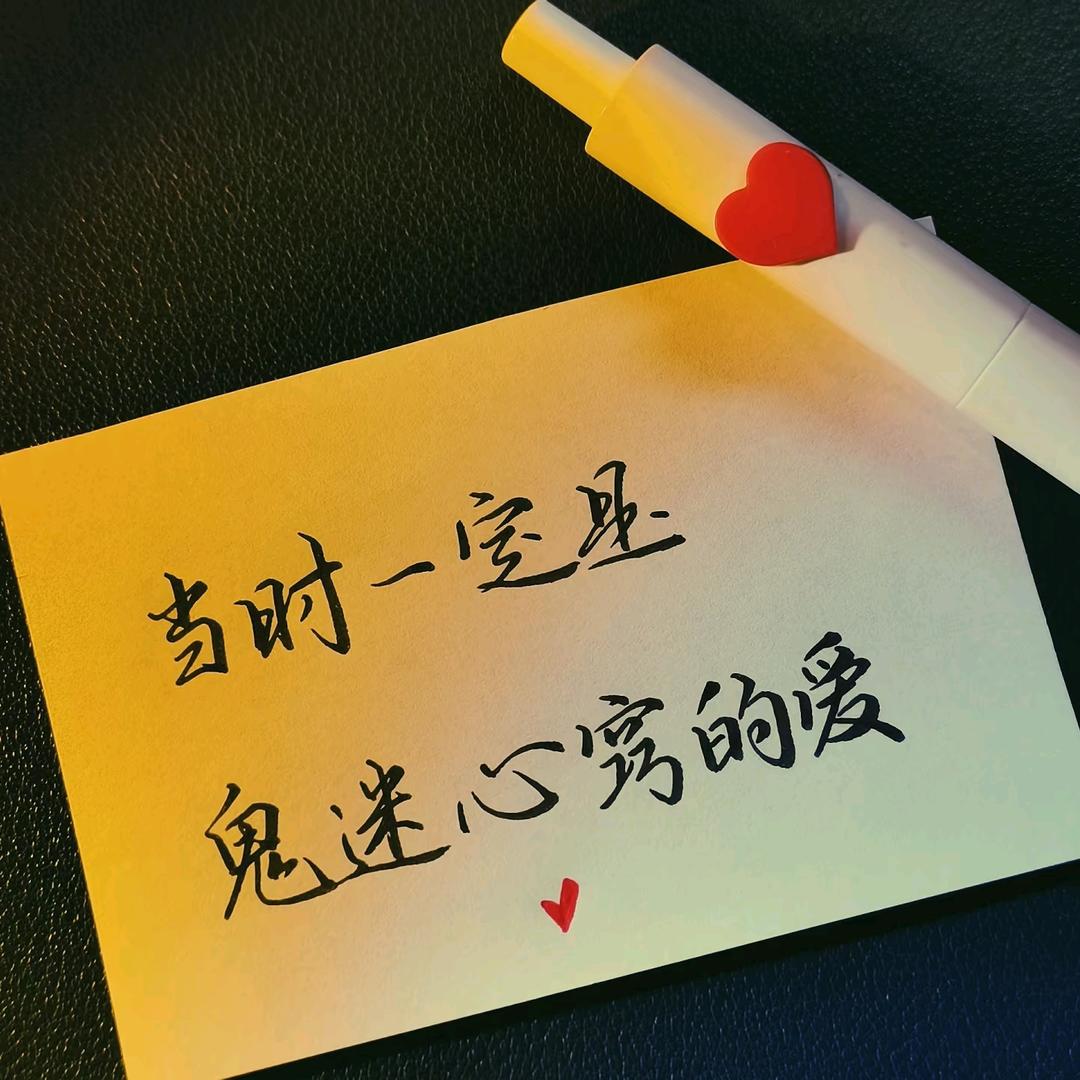 当时一定是
鬼迷心窍的爱